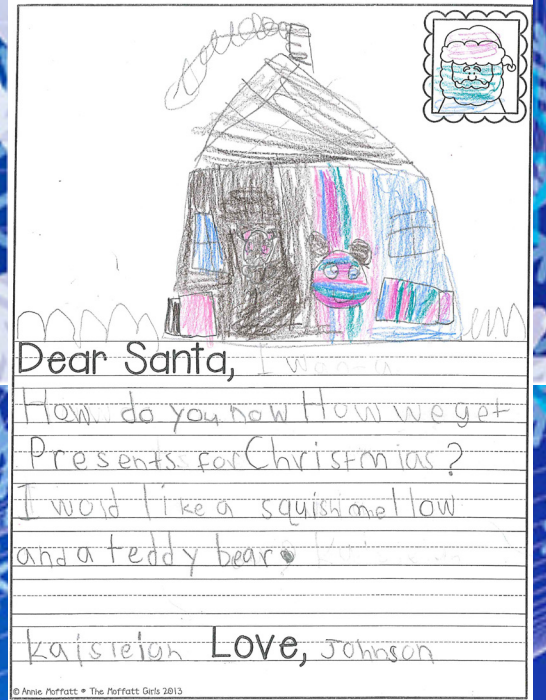 Dear Santa, I wanta
How do you now How we get
Presents for Christmias?
I wold like a squishmellow
and a teddy bear.
Kaisleigh Love, Johnson
© Annie Moffatt • The Moffatt Girls 2013